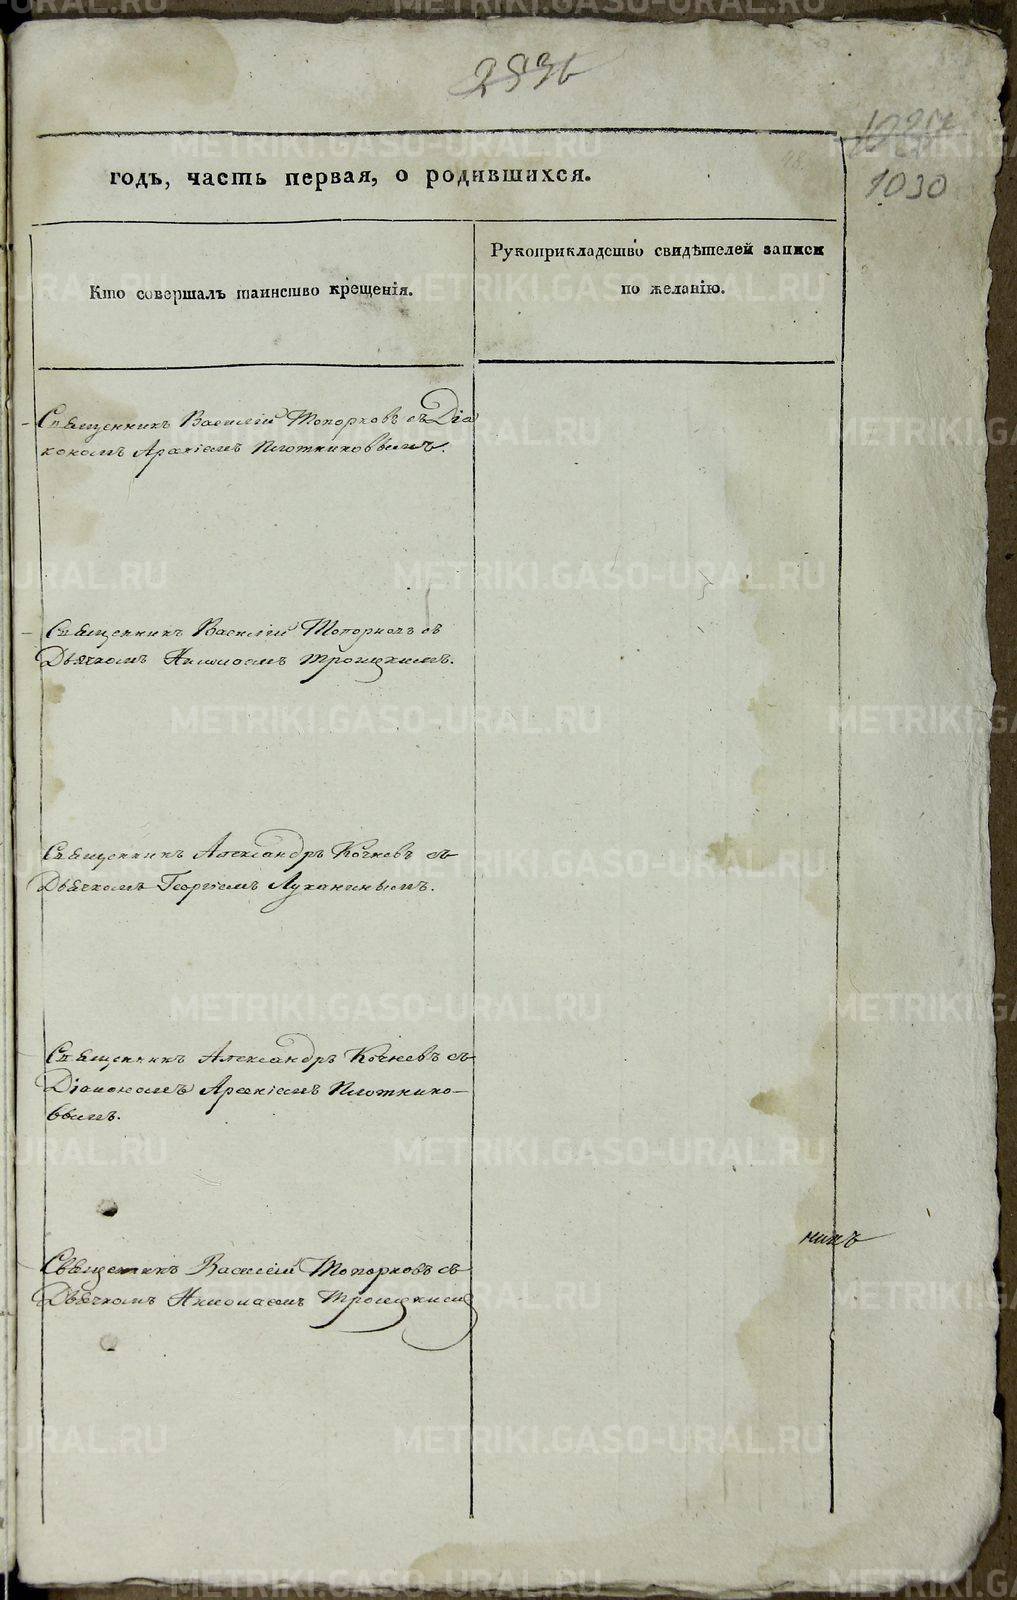 1030
годъ, часть первая, о родившихся.
Кто совершалъ таинство крещенія.
Рукоприкладство свидѣтелей записи
по желанію.
Священникъ Василій Топорковъ съ Діа
кономъ Арсеніемъ Плотниковымъ.
Священникъ Василій Топорковъ съ
Дьячкомъ Николаемъ Троицкимъ.
Священникъ Александръ Кочневъ съ
Дьячкомъ Георгіемъ Луканинымъ.
Священникъ Александръ Кочневъ съ
Діакономъ Арсеніемъ Плотнико-
вымъ.
никъ
Священникъ Василій Топорковъ съ
Дьячкомъ Николаемъ Троицкимъ
METRIKI.GASO-URAL.RU